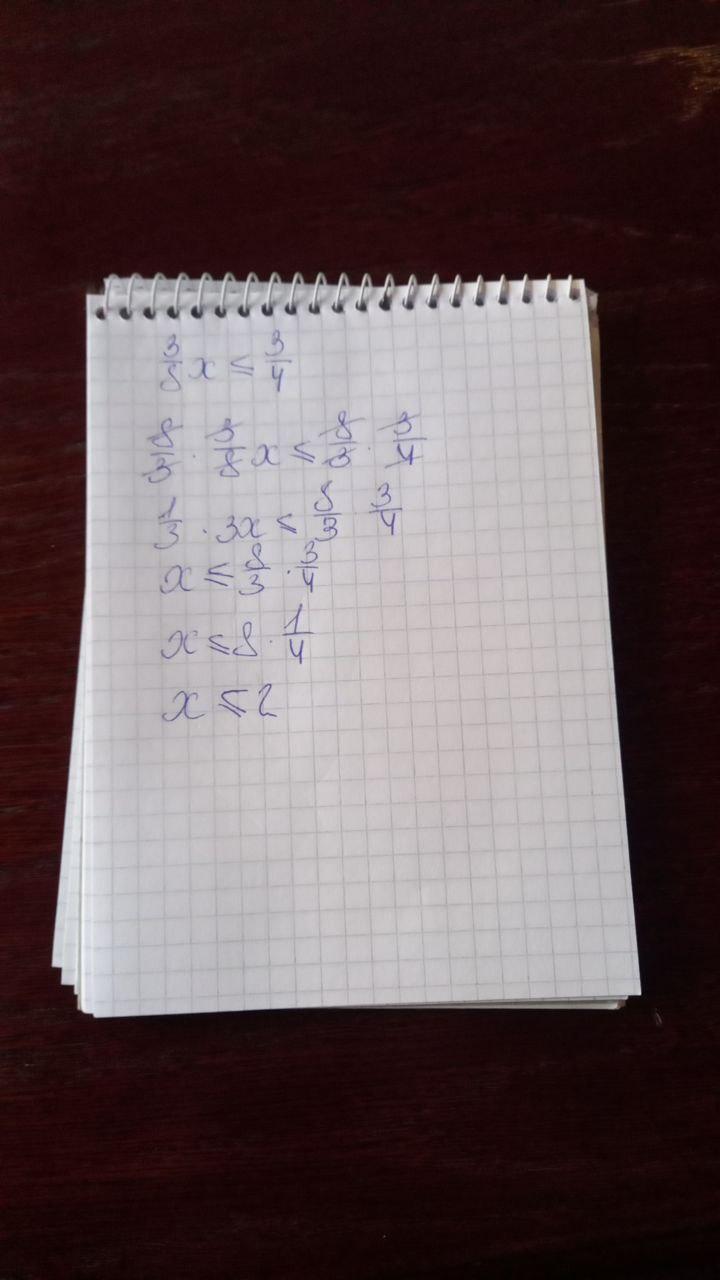 3/8 x ≤ 3/4
8/3 · 3/8 x ≤ 8/3 · 3/4
1/3 · 3x ≤ 8/3 3/4
x ≤ 8/3 · 3/4
x ≤ 8 · 1/4
x ≤ 2